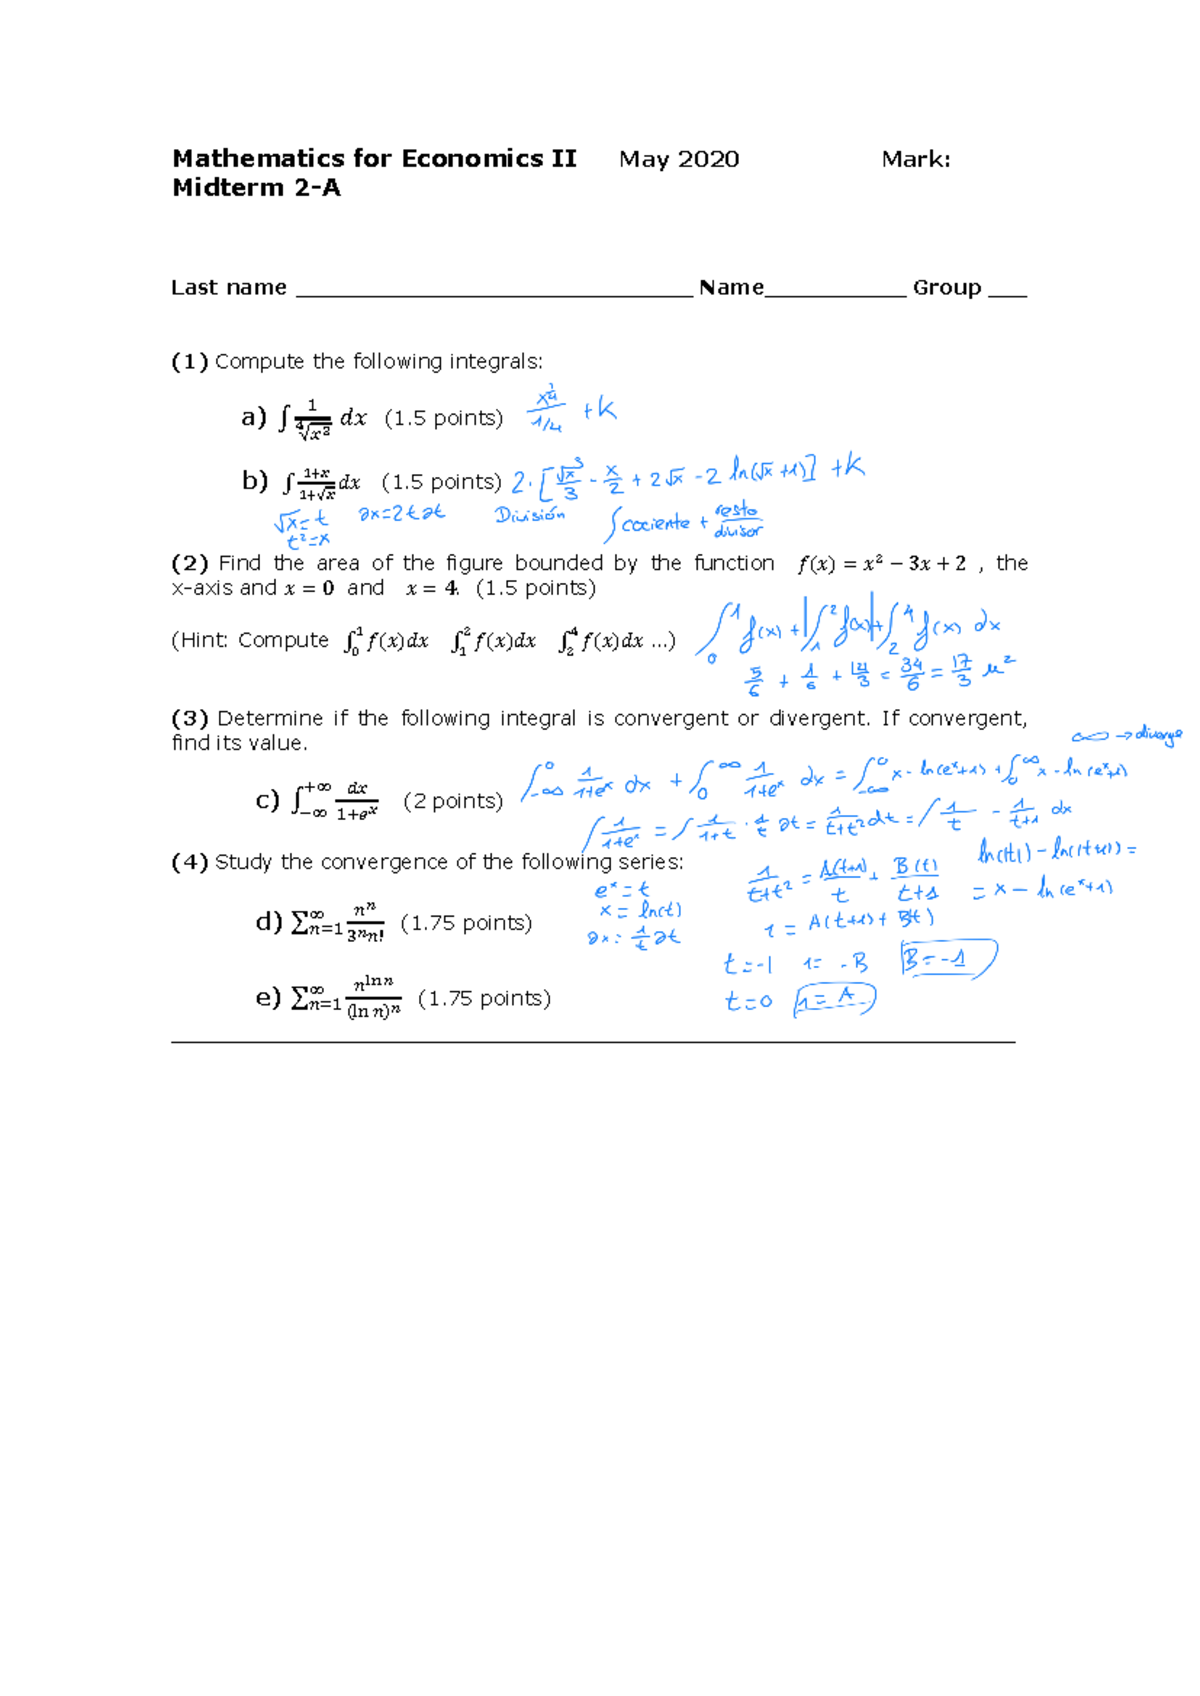 Mathematics for Economics II May 2020 Mark:
Midterm 2-A
Last name ______________________________ Name___________ Group ___
(1) Compute the following integrals:
a) ∫ 1/∜x³ dx (1.5 points) x^(1/4)/(1/4) + k
b) ∫ (1+x)/(1+√x) dx (1.5 points) 2·[√x³/3 - x/2 + 2√x - 2 ln(√x+1)] + k
√x = t ∂x=2t∂t División ∫cociente + resto/divisor
t²=x
(2) Find the area of the figure bounded by the function f(x) = x² − 3x + 2 , the
x-axis and x = 0 and x = 4. (1.5 points)
(Hint: Compute ∫₀¹ f(x)dx ∫₁² f(x)dx ∫₂⁴ f(x)dx ...) ∫₀¹ f(x) + |∫₁² f(x)| + ∫₂⁴ f(x) dx
5/6 + 1/6 + 14/3 = 34/6 = 17/3 u²
(3) Determine if the following integral is convergent or divergent. If convergent,
find its value.
∞ → diverge
c) ∫₋∞⁺∞ dx/(1+eˣ) (2 points) ∫₋∞⁰ 1/(1+eˣ) dx + ∫₀^∞ 1/(1+eˣ) dx = ∫₋∞⁰ x - ln(eˣ+1) + ∫₀^∞ x - ln(eˣ+1)
∫ 1/(1+eˣ) = ∫ 1/(1+t) · 1/t ∂t = 1/(t+t²) dt = ∫ 1/t - 1/(t+1) dx
(4) Study the convergence of the following series:
ln(|t|) - ln(|t+1|) =
= x - ln(eˣ+1)
eˣ = t
x = ln(t)
∂x = 1/t ∂t
1/(t+t²) = A(t+1)/t + B(t)/(t+1)
d) ∑ₙ₌₁^∞ nⁿ/(3ⁿn!) (1.75 points)
1 = A(t+1) + B(t)
t=-1 1= -B B=-1
e) ∑ₙ₌₁^∞ n^(ln n)/(ln n)ⁿ (1.75 points)
t=0 1=A